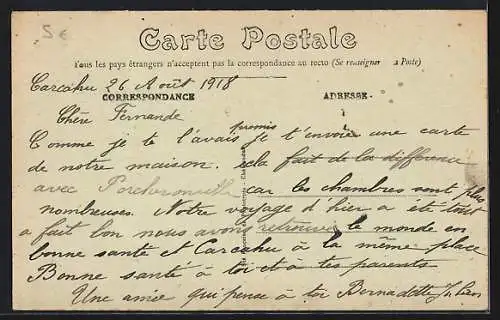 5 €
Carte Postale
Tous les pays étrangers n'acceptent pas la correspondance au recto (Se renseigner à Poste)
Carcahu 26 Août 1918
CORRESPONDANCE ADRESSE
Chère Fernande
Comme je te l'avais promis je t'envoie une carte
de notre maison. cela fait de la différence
avec car les chambres sont plus
nombreuses. Notre voyage d'hier a été tout
a fait bon nous avons retrouvé le monde en
bonne santé et Carcahu à la même place
Bonne santé à toi et à tes parents
Une amie qui pense à toi Bernadette